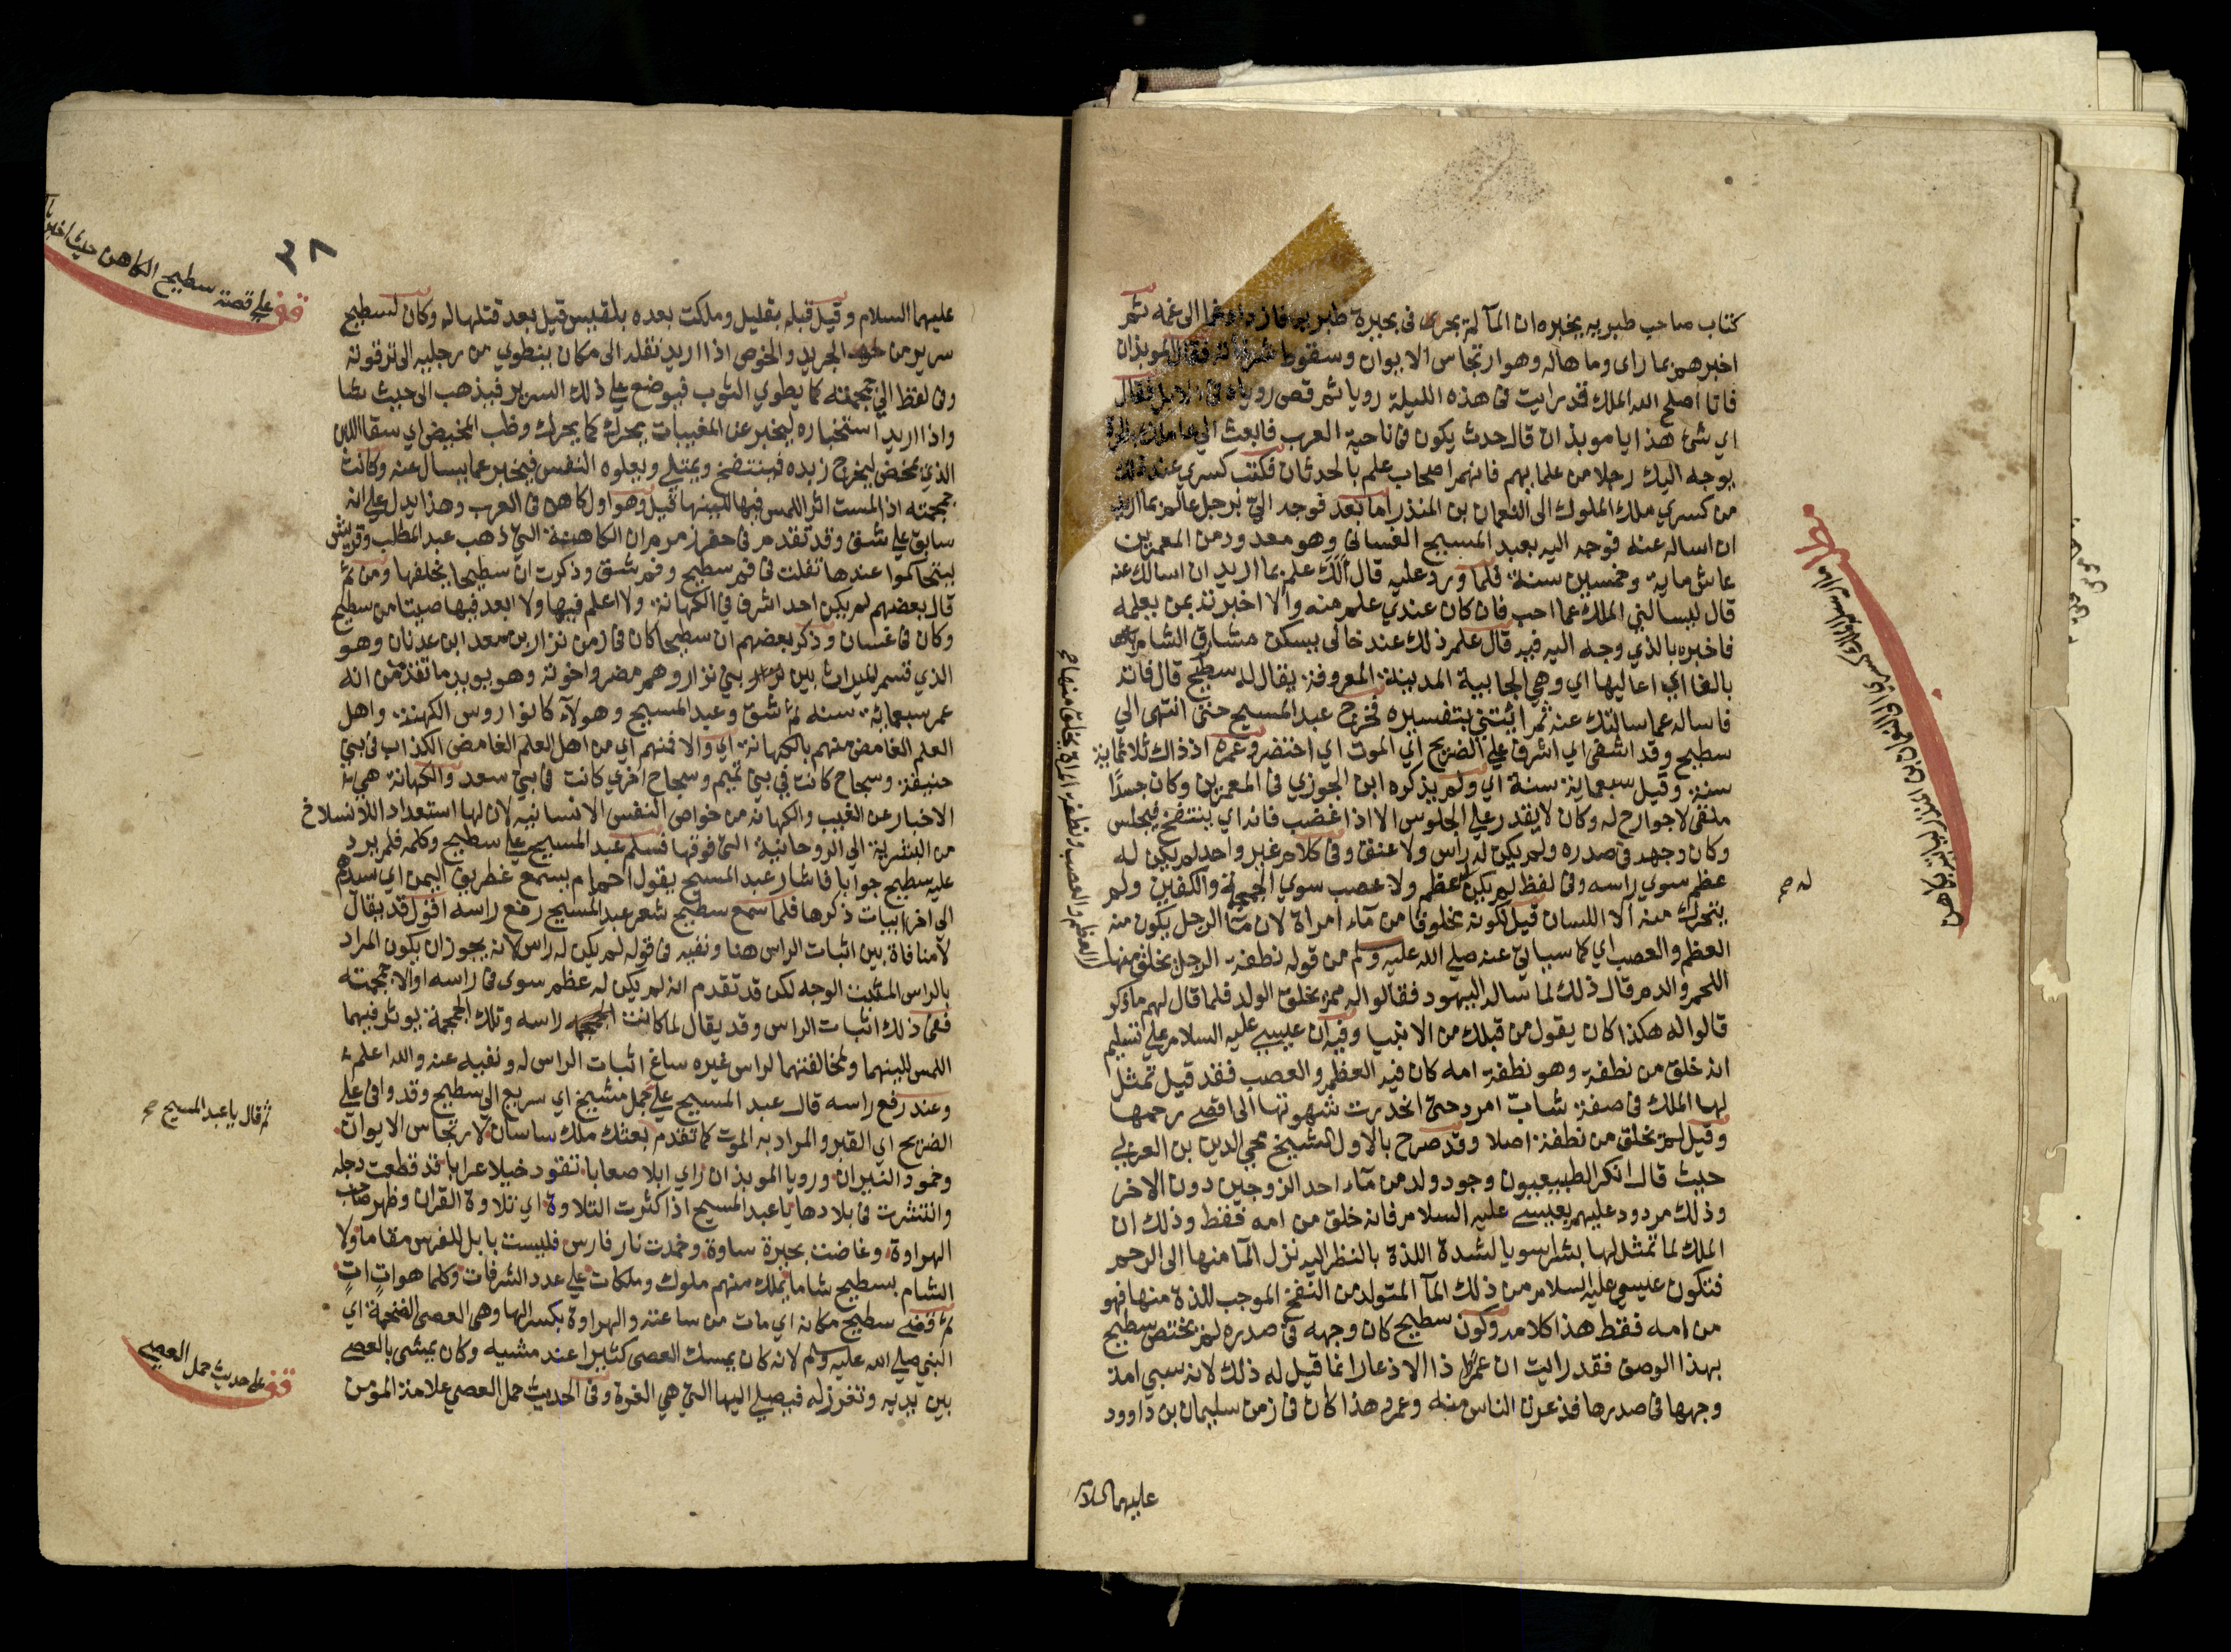 كتاب صاحب طبريه يخبره ان المآ لم يجرى فى بحيرة طبريه فازداد غما الى غمه ثم
اخبرهم بما راى وما هاله وهو ارتجاس الايوان وسقوط شرفاته فقال الموبذان
فانا اصلح الله الملك قد رايت فى هذه الليلة رويا ثم قص روياه فى الابل فقال
اي شئ هذا يا موبذان قال حدث يكون فى ناحية العرب فابعث الي عاملك بالحيرة
يوجه اليك رجلا من علمايهم فانهم اصحاب علم بالحدثان فكتب كسري عند ذلك
من كسري ملك الملوك الى النعمان بن المنذر اما بعد فوجه الىّ برجل عالم بما اريد
ان اساله عنه فوجه اليه بعبد المسيح الغسانى وهو معدود من المعمرين
عاش ماية وخمسين سنة فلما ورد عليه قال ألك علم بما اريد ان اسالك عنه
قال ليسالني الملك عما احب فان كان عندي علم منه والا اخبرته بمن يعلمه
فاخبره بالذي وجه اليه فيه قال علم ذلك عند خالى يسكن مشارق الشام
بالفا اي اعاليها اي وهي الجابية المدينة المعروفة يقال له سطيح قال فاته
فاساله عما سالتك عنه ثم ائتنى بتفسيره فخرج عبد المسيح حتى انتهى الي
سطيح وقد اشفى اي اشرف على الضريح اي الموت اي احتضر وعمره اذ ذاك ثلاثماية
سنة وقيل سبعماية سنة اي ولم يذكره ابن الجوزي فى المعمرين وكان جسدًا
ملقى لا جوارح له وكان لا يقدر على الجلوس الا اذا غضب فانه اي ينتفخ فيجلس
وكان وجهه فى صدره ولم يكن له راس ولا عنق وفى كلام غير واحد لم يكن له
عظم سوي راسه وفى لفظ لم يكن له عظم ولا عصب سوي الجمجمة والكفين ولم
يتحرك منه الا اللسان قيل لكونه مخلوقا من مآء امراة لان مآ الرجل يكون منه
العظم والعصب اي كما سياتى عنه صلى الله عليه وسلم من قوله نطفة الرجل يخلق منها
اللحم والدم قال ذلك لما ساله اليهود فقالوا له مم يخلق الولد فلما قال لهم ما ذكر
قالوا له هكذا كان يقول من قبلك من الانبيا وفيه ان عيسى عليه السلام على تسليم
انه خلق من نطفة وهو نطفة امه كان فيه العظم والعصب فقد قيل تمثل
لها الملك فى صفة شابّ امرد حتى انحدرت شهوتها الى اقصى رحمها
وقيل لم يخلق من نطفة اصلا وقد صرح بالاول الشيخ محيي الدين بن العربي
حيث قال انكر الطبيعيون وجود ولد من مآء احد الزوجين دون الاخر
وذلك مردود عليهم بعيسى عليه السلام فانه خلق من امه فقط وذلك ان
الملك لما تمثل لها بشرا سويا لشدة اللذة بالنظر اليه نزل المآ منها الى الرحم
فتكون عيسى عليه السلام من ذلك المآ المتولد من النفخ الموجب للذة منها فهو
من امه فقط هذا كلامه وكون سطيح كان وجهه فى صدره لم يختص سطيح
بهذا الوصف فقد رايت ان عمرًا ذا الاذعار انما قيل له ذلك لانه سبى امة
وجهها فى صدرها فذعرت الناس منه وعمرو هذا كان فى زمن سليمان بن داوود
عليهما السلام
العظم والعصب ونطفة المراة يخلق منها صح
له صح
٣٨
قف على قصة سطيح الكاهن حيث اخبر
عليهما السلام وقيل قبله بقليل وملكت بعده بلقيس قيل بعد قتلها له وكان لسطيح
سرير من الجريد والخوص اذا اريد نقله الى مكان ينطوي من رجليه الى ترقوته
وفى لفظ الي جمجمته كما يطوي الثوب فيوضع على ذلك السرير فيذهب الى حيث يشا
واذا اريد استخباره ليخبر عن المغيبات يحرك كما يحرك وظب المخيض اي سقا اللبن
الذي يمخض ليخرج زبده فينتفخ ويمتلى ويعلوه النفس فيخبر عما يسال عنه وكانت
جمجمته اذا لمست اثر اللمس فيها للينها قيل وهو اول كاهن فى العرب وهذا يدل على انه
سابق على شق وقد تقدم فى حفر زمزم ان الكاهنة التى ذهب عبد المطلب وقريش
ليتحاكموا عندها تفلت فى فم سطيح وفم شق وذكرت ان سطيحا يخلفها ومن ثم
قال بعضهم لم يكن احد اشرف في الكهانة ولا اعلم فيها ولا ابعد فيها صيتا من سطيح
وكان فى غسان وذكر بعضهم ان سطيحا كان فى زمن نزار بن معد ابن عدنان وهو
الذي قسم الميراث بين بني نزار وهم مضر واخوته وهو يويد ما تقدم من انه
عمر سبعماية سنة ثم شق وعبد المسيح وهولآء كانوا روس الكهنة واهل
العلم الغامض منهم بالكهانة اي والا فمنهم اي من اهل العلم الغامض الكذاب فى بني
حنيفة وسجاح كانت في بني تميم وسجاح اخري كانت فى بني سعد والكهانة هي
الاخبار عن الغيب والكهانة من خواص النفس الانسانيه لان لها استعداد اللانسلاخ
من البشرية الى الروحانية التى فوقها فسلم عبد المسيح على سطيح وكلمه فلم يرد
عليه سطيح جوابا فانشا عبد المسيح يقول اصم ام يسمع غطريف اليمن اي سيدهم
الى اخر ابيات ذكرها فلما سمع سطيح شعر عبد المسيح رفع راسه اقول قد يقال
لا منافاة بين اثبات الراس هنا ونفيه فى قوله لم يكن له راس لانه يجوز ان يكون المراد
بالراس المثبت الوجه لكن قد تقدم انه لم يكن له عظم سوى فى راسه او الا جمجمته
ففى ذلك اثبات الراس وقد يقال لما كانت الجمجمه راسه وتلك الجمجمة يوثر فيهما
اللمس للينهما ولمخالفتهما لراس غيره ساغ اثبات الراس له ونفيه عنه والله اعلم
وعند رفع راسه قال عبد المسيح على جمل مشيح اي سريع الى سطيح وقد وافى على
الضريح اي القبر والمراد به الموت كما تقدم بعثك ملك ساسان لارتجاس الايوان
وخمود النيران ورويا الموبذان راي ابلا صعابا تقود خيلا عرابا قد قطعت دجله
وانتشرت فى بلادها يا عبد المسيح اذا كثرت التلاوة اي تلاوة القران وظهر صاحب
الهراوة وغاضت بحيرة ساوة وخمدت نار فارس فليست بابل للفرس مقاما ولا
الشام بسطيح شاما يملك منهم ملوك وملكات على عدد الشرفات وكلما هو اتٍ اتٍ
ثم قضى سطيح مكانه اي مات من ساعته والهراوة بكسر الها وهى العصى الضخمة اي
النبي صلى الله عليه وسلم لانه كان يمسك العصى كثيرا عند مشيه وكان يمشى بالعصى
بين يديه وتغرز له فيصلى اليها التى هي العنزة وفى الحديث حمل العصى علامة المومن
ثم قال يا عبد المسيح صح
قف على حديث حمل العصى